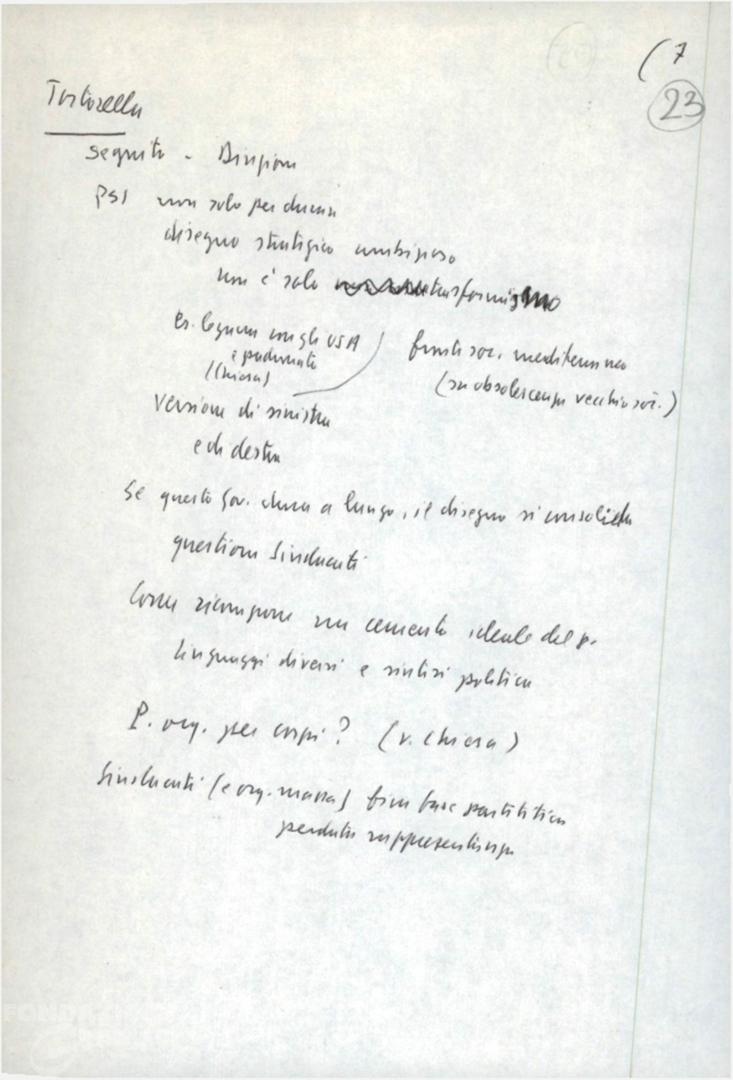 (7
23
Tortorella
seguito - Direzione
PSI non solo per ducun
disegno strategico ambizioso
non è solo trasformismo
es. legami con gli USA
e padronato
(Chiesa)
fronte soc. mediterraneo
(su obsolescenza vecchio soc.)
versione di sinistra
e di destra
Se questo gov. dura a lungo, il disegno si consolida
questione Sindacati
Come ricompone un cemento ideale del p.
linguaggi diversi e sintesi politica
P. org. per corpi? (v. Chiesa)
Sindacati (e org. massa) base partitica
perduta rappresentanza
FONDAZI